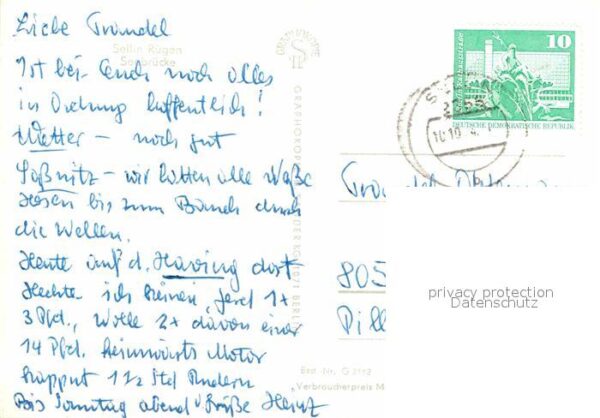 Liebe Traudel
Sellin Rügen
Seebrücke
Ist bei Euch noch alles
in Ordnung hoffentlich!
Wetter – noch gut
Saßnitz – wir hatten alle naße
Hosen bis zum Bauch durch
die Wellen.
Heute auf d. Having dort
Hechte. ich keinen, Gerd 1x
3 Pfd., Wolle 2x davon einer
14 Pfd. heimwärts Motor
kapput 1 1/2 Std Rudern
Bis Sonntag abend Grüße Heinz
GRAPHOKOPIE
GRAPHOKOP
BERL
Best.-Nr. G 3162
Verbraucherpreis M
10
DEUTSCHE DEMOKRATISCHE REPUBLIK
2356
10.10
Traudel
805
privacy protection
Datenschutz